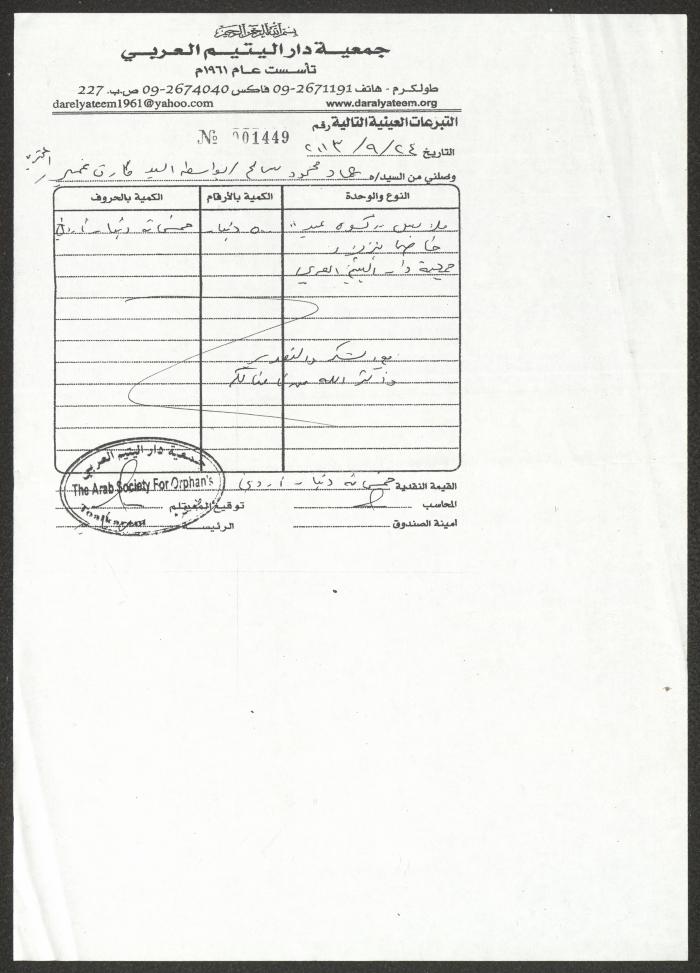 بسم الله الرحمن الرحيم
جمعية دار اليتيم العربي
تأسست عام ١٩٦١م
طولكرم - هاتف 09-2671191 فاكس 09-2674040 ص.ب. 227
darelyateem1961@yahoo.com www.daralyateem.org
التبرعات العينية التالية رقم № 001449
التاريخ ٢٠١٣/٩/٢٤
وصلني من السيد/ه محمود سالم بواسطة السيد
النوع والوحدة الكمية بالأرقام الكمية بالحروف
ملابس "كسوة عيد" ٥٠٠ دينار خمسمائة دينار أردني
جمعية دار اليتيم العربي
مع الشكر والتقدير
القيمة النقدية خمسمائة دينار أردني
المحاسب توقيع المستلم
أمينة الصندوق الرئيسة
جمعية دار اليتيم العربي
The Arab Society For Orphan's
Toulkarem